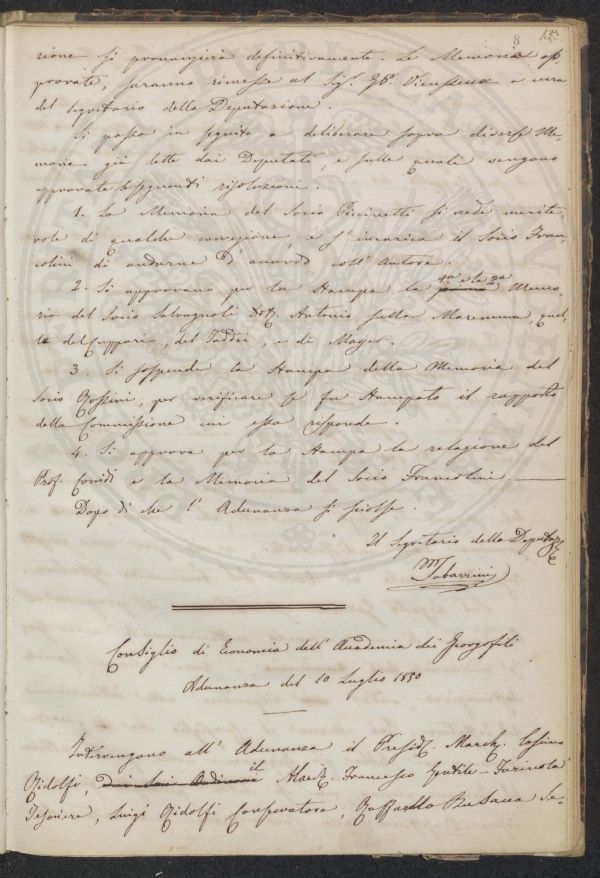 8
zione si pronunzierà definitivamente. Le Memorie ap
provate, saranno rimesse al Sig. Gb. Vieusseux a cura
del Segretario della Deputazione.
Si passa in seguito a deliberare sopra diverse Me-
morie già lette dai Deputati, e sulle quali vengono
approvate le seguenti risoluzioni.
1. La Memoria del Socio Piccinetti si vede merite-
vole di qualche correzione e s'incarica il Socio Fran-
colini di andarne d'accordo coll'Autore.
2. Si approvano per la stampa la 1a e la 2a Memo-
ria del Socio Salvagnoli Dott. Antonio sulla Maremma, quel-
le del Cuppari, del Taddei, e di Mayer.
3. Si sospende la stampa della Memoria del
Socio Rossini, per verificare se fu stampato il rapporto
della Commissione cui essa risponde.
4. Si approva per la stampa la relazione del
Prof. Corridi e la Memoria del Socio Francolini.
Dopo di che l'Adunanza si sciolse.
Il Segretario della Deputaz.e
MTabarrini
Consiglio di Economia dell'Accademia dei Georgofili
Adunanza del 10 Luglio 1850
Intervengono all'Adunanza il Presid. March. Cosimo
Ridolfi, il March. Francesco Gentile-Farinola
Tesoriere, Luigi Ridolfi Conservatore, Raffaello Busacca Se-